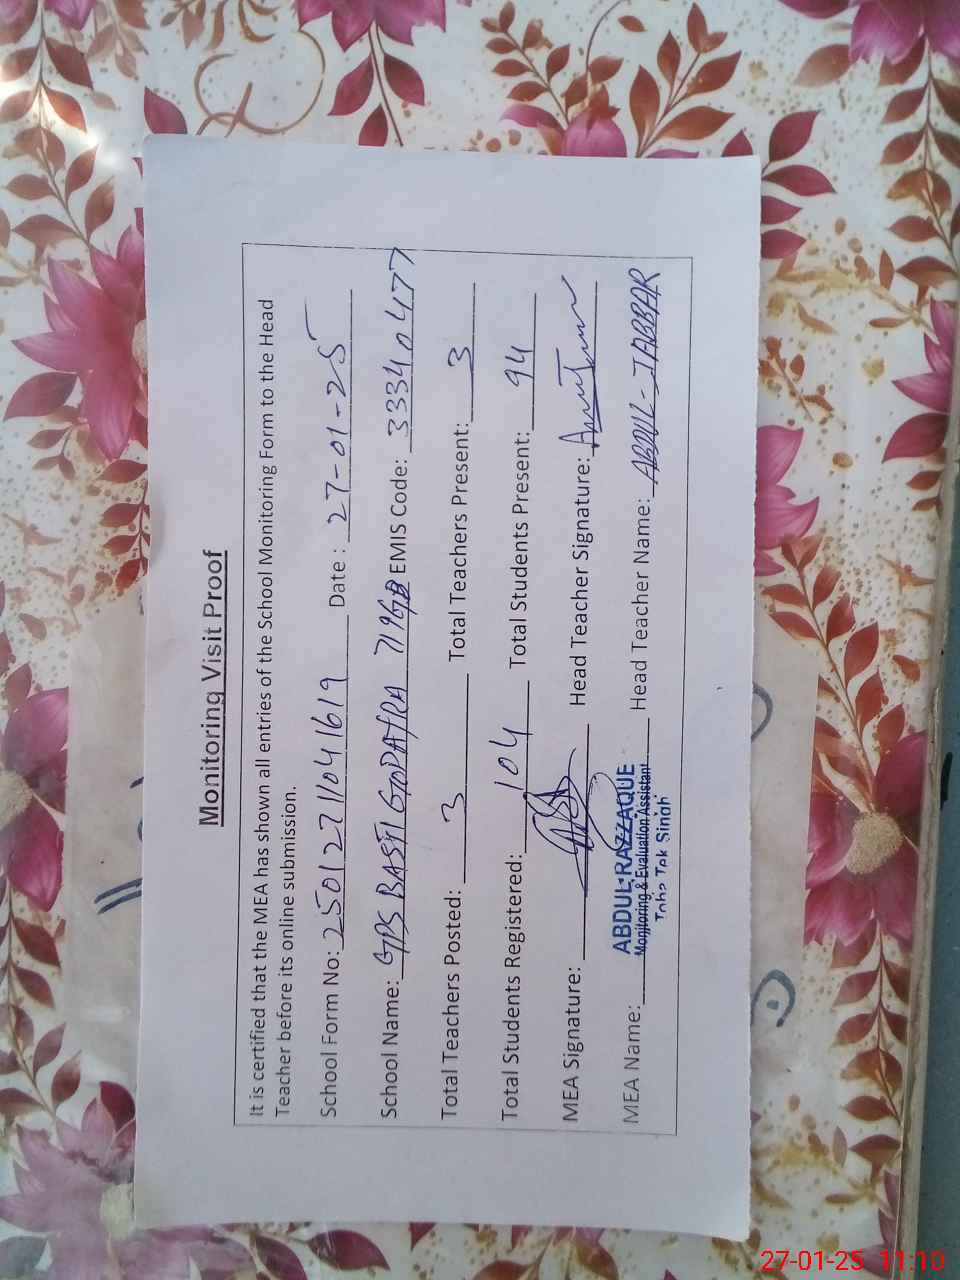 Monitoring Visit Proof
It is certified that the MEA has shown all entries of the School Monitoring Form to the Head
Teacher before its online submission.
School Form No: 25012711041619 Date : 27-01-25
School Name: GPS BASTI 719GB EMIS Code: 33340477
Total Teachers Posted: 3 Total Teachers Present: 3
Total Students Registered: 104 Total Students Present: 94
MEA Signature: Head Teacher Signature:
MEA Name: ABDUL RAZZAQUE Head Teacher Name: ABDUL-JABBAR
Monitoring & Evaluation Assistant
Toba Tek Singh
27-01-25 11:10